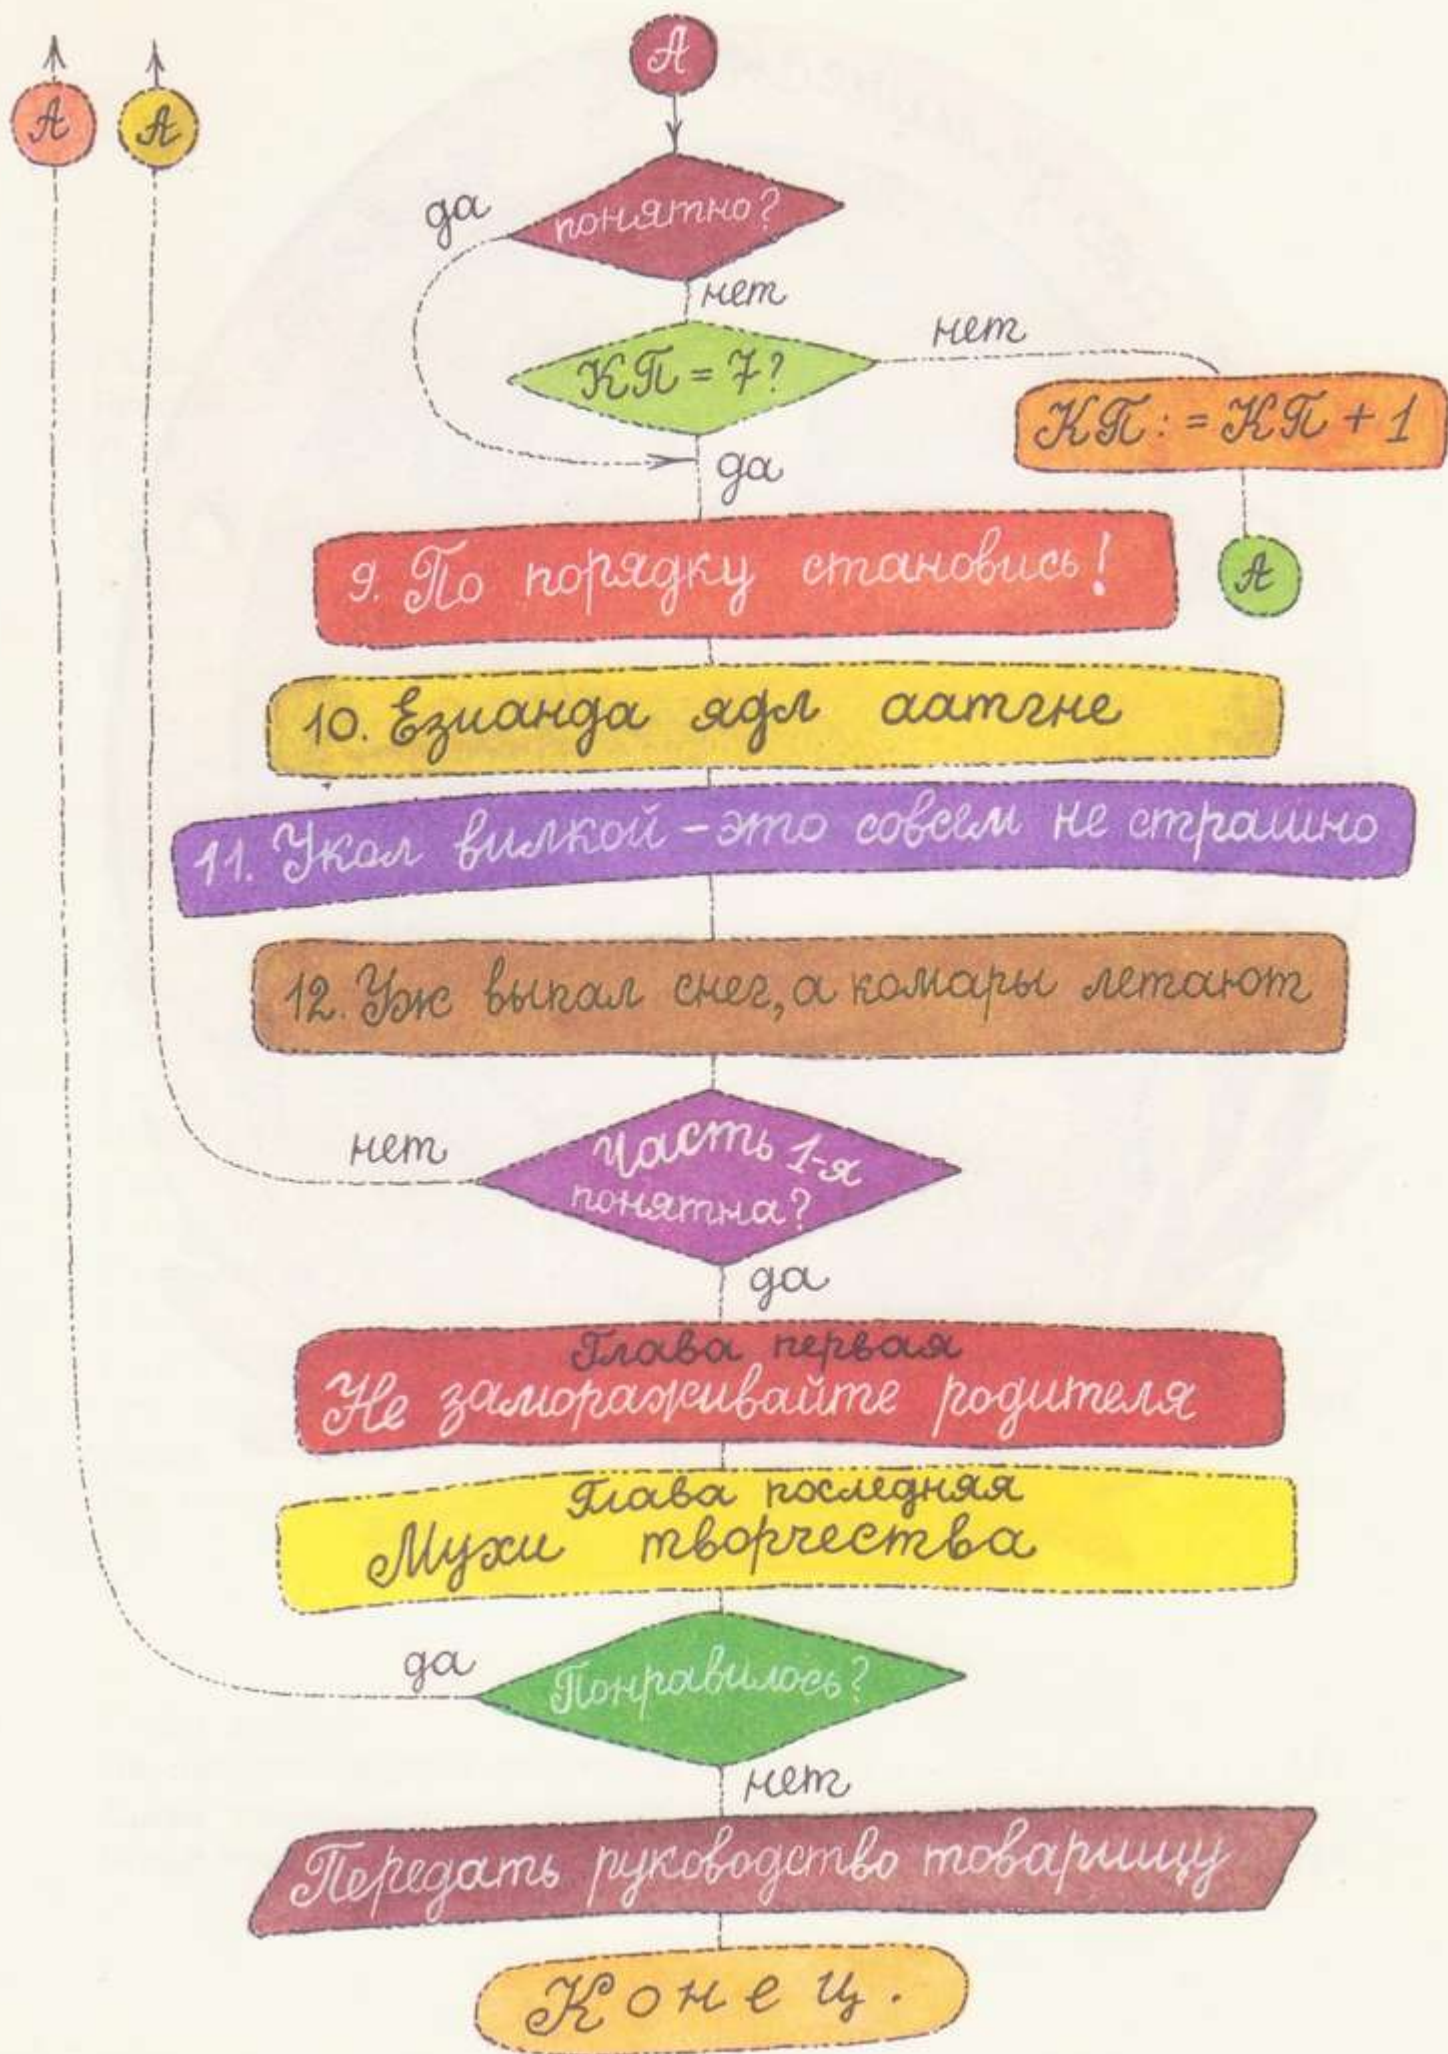 А
А
А
да
понятно?
нет
КП = 7?
нет
КП := КП + 1
да
9. По порядку становись!
А
10. Езианда ядл аатгне
11. Укол вилкой – это совсем не страшно
12. Уж выпал снег, а комары летают
нет
Часть 1-я
понятна?
да
Глава первая
Не замораживайте родителя
Глава последняя
Мухи творчества
да
Понравилось?
нет
Передать руководство товарищу
Конец.